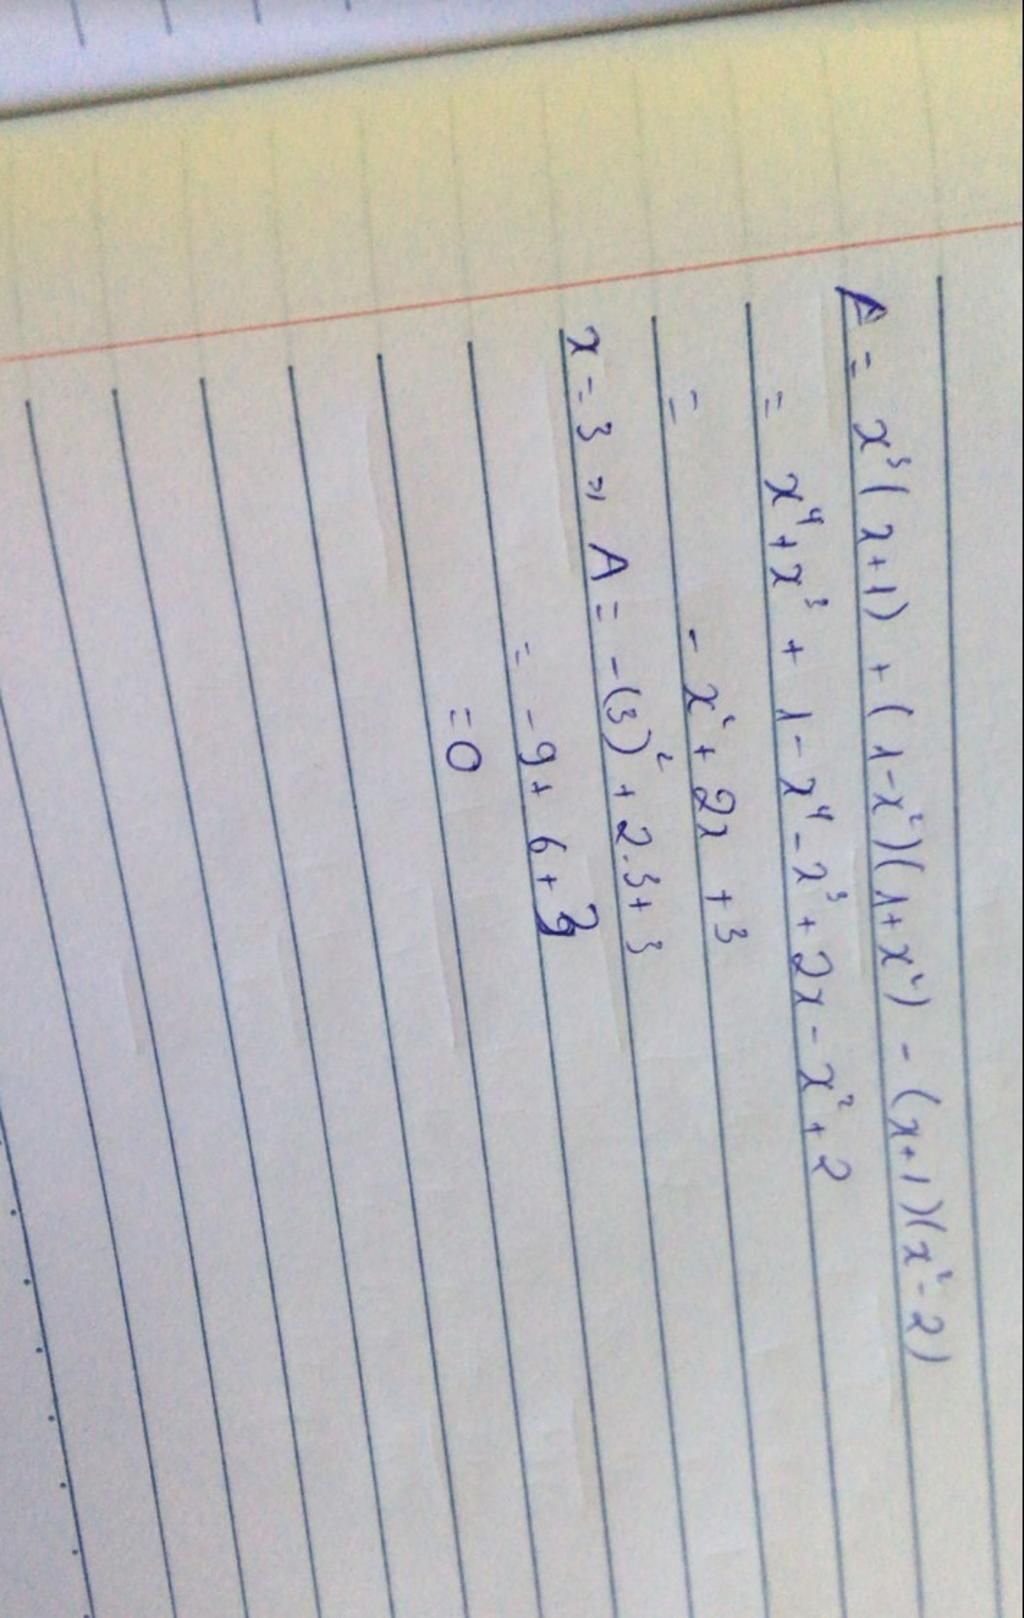 A = x³(x+1) + (1-x²)(1+x²) - (x+1)(x²-2)
= x⁴+x³ + 1-x⁴-x³+2x-x²+2
= -x²+2x +3
x=3 => A= -(3)²+2.3+3
= -9+ 6+3
=0